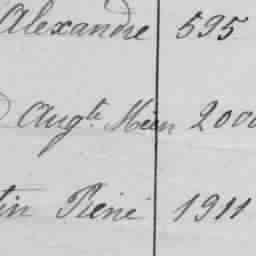 Alexandre 595
Augte Mien 2000
tin René 1911